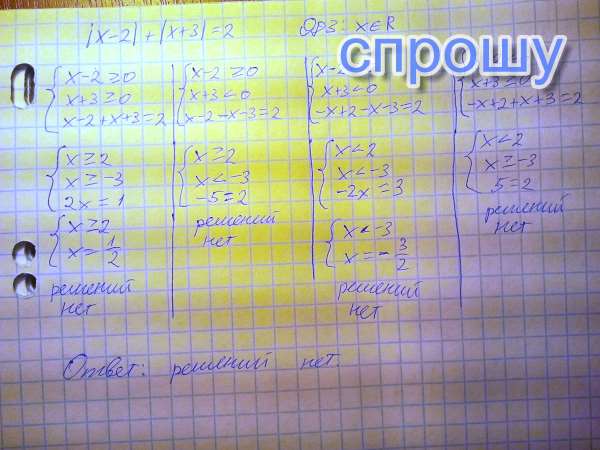 |x-2| + |x+3| = 2 ОДЗ: x∈R
спрошу
x-2≥0
x+3≥0
x-2+x+3=2
x≥2
x≥-3
2x=1
x≥2
x=1/2
решений
нет
x-2≥0
x+3<0
x-2-x-3=2
x≥2
x<-3
-5=2
решений
нет
x-2
x+3<0
-x+2-x-3=2
x<2
x<-3
-2x=3
x<-3
x=-3/2
решений
нет
-x+2+x+3=2
x<2
x≥-3
5=2
решений
нет
Ответ: решений нет.